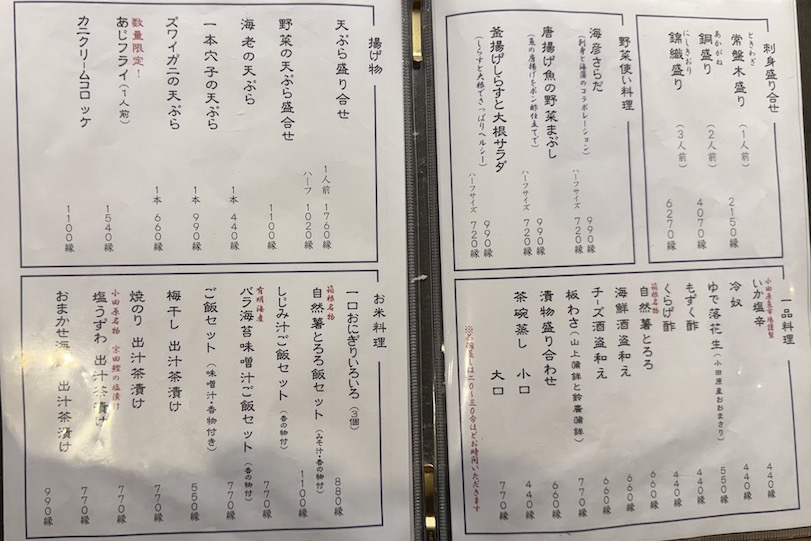 刺身盛り合せ
ときわぎ
常盤木盛り（1人前） 2150縁
あかがね
銅盛り（2人前） 4070縁
にしきおり
錦織盛り（3人前） 6270縁
野菜使い料理
海彦さらだ 990縁
（刺身と海藻のコラボレーション） ハーフサイズ 720縁
唐揚げ魚の野菜まぶし 990縁
（魚の唐揚げをポン酢仕立てで） ハーフサイズ 720縁
釜揚げしらすと大根サラダ 990縁
（しらすと大根でさっぱりヘルシー） ハーフサイズ 720縁
一品料理
小田原魚市場謹製
いか塩辛 440縁
冷奴 440縁
ゆで落花生（小田原産おおまさり） 550縁
もずく酢 440縁
くらげ酢 440縁
箱根名物
自然薯とろろ 660縁
海鮮酒盗和え 660縁
チーズ酒盗和え 660縁
板わさ（山上蒲鉾と鈴廣蒲鉾） 770縁
漬物盛り合わせ 660縁
茶碗蒸し 小口 440縁
大口 770縁
※お蒸しは二〇～三〇分ほどお時間いただきます
揚げ物
天ぷら盛り合せ 1人前 1760縁
ハーフ 1020縁
野菜の天ぷら盛合せ 1100縁
海老の天ぷら 1本 440縁
一本穴子の天ぷら 1本 990縁
ズワイガニの天ぷら 1本 660縁
数量限定！
あじフライ（1人前） 1540縁
カニクリームコロッケ 1100縁
お米料理
一口おにぎりいろいろ（3個） 880縁
箱根名物
自然薯とろろ飯セット（みそ汁・香の物付） 1100縁
しじみ汁ご飯セット（香の物付） 770縁
有明海産
バラ海苔味噌汁ご飯セット（香の物付） 770縁
ご飯セット（味噌汁・香物付き） 550縁
梅干し 出汁茶漬け 770縁
焼のり 出汁茶漬け 770縁
小田原名物 宗田鰹の塩漬け
塩うずわ 出汁茶漬け 770縁
おまかせ海鮮 出汁茶漬け 990縁